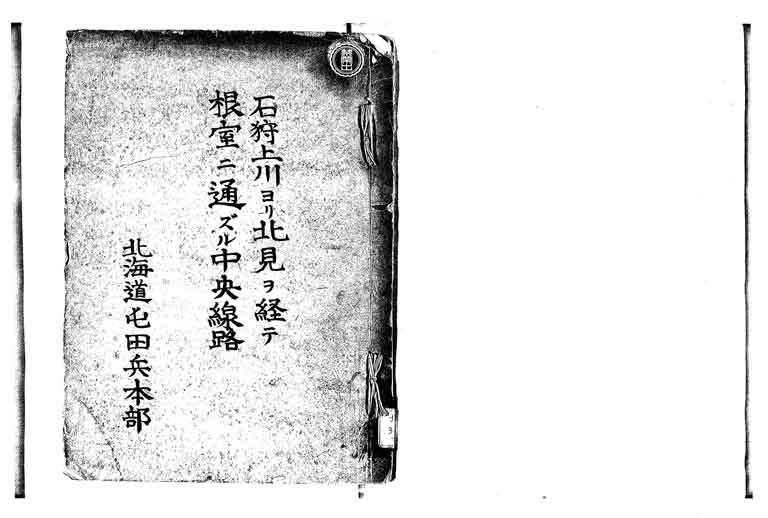 石狩上川ヨリ北見ヲ経テ
根室ニ通ズル中央線路
北海道屯田兵本部